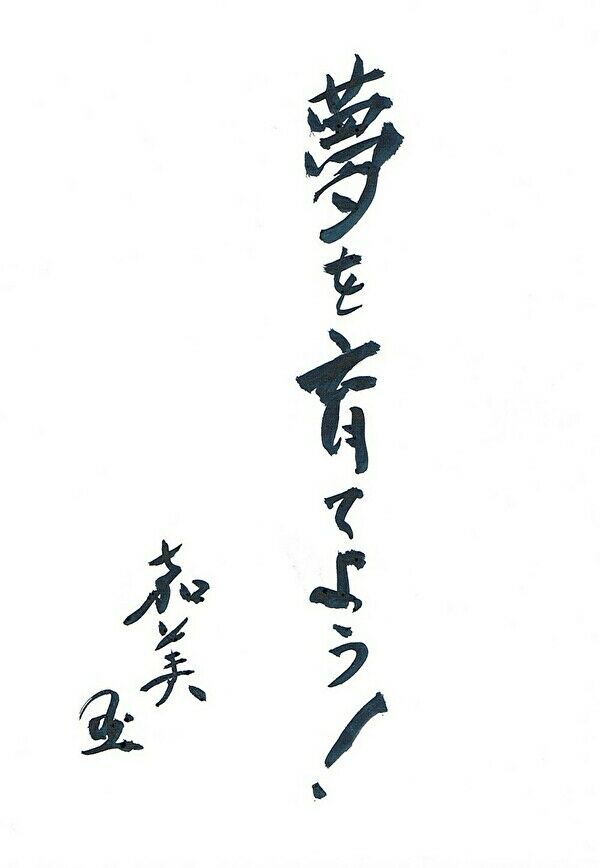 夢を育てよう!
嘉美